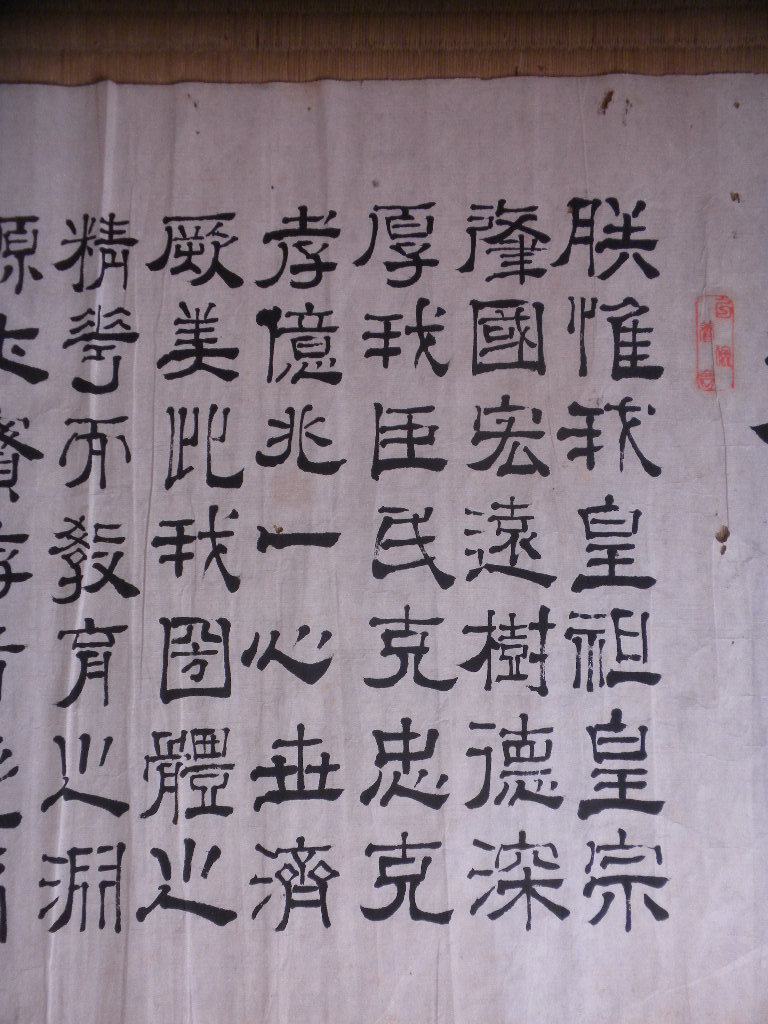 朕惟我皇祖皇宗
肇國宏遠樹德深
厚我臣民克忠克
孝億兆一心世濟
厥美此我圀體之
精華而敎育之淵
源